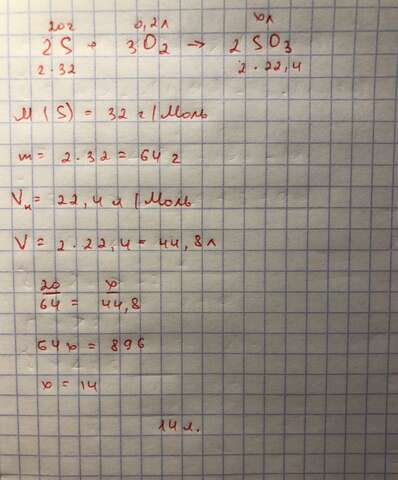 20г 0,2л xл
2S + 3O₂ → 2SO₃
2·32 2·22,4
M(S) = 32 г/моль
m = 2·32 = 64 г
Vₘ = 22,4 л/моль
V = 2·22,4 = 44,8 л
20/64 = x/44,8
64x = 896
x = 14
14л.